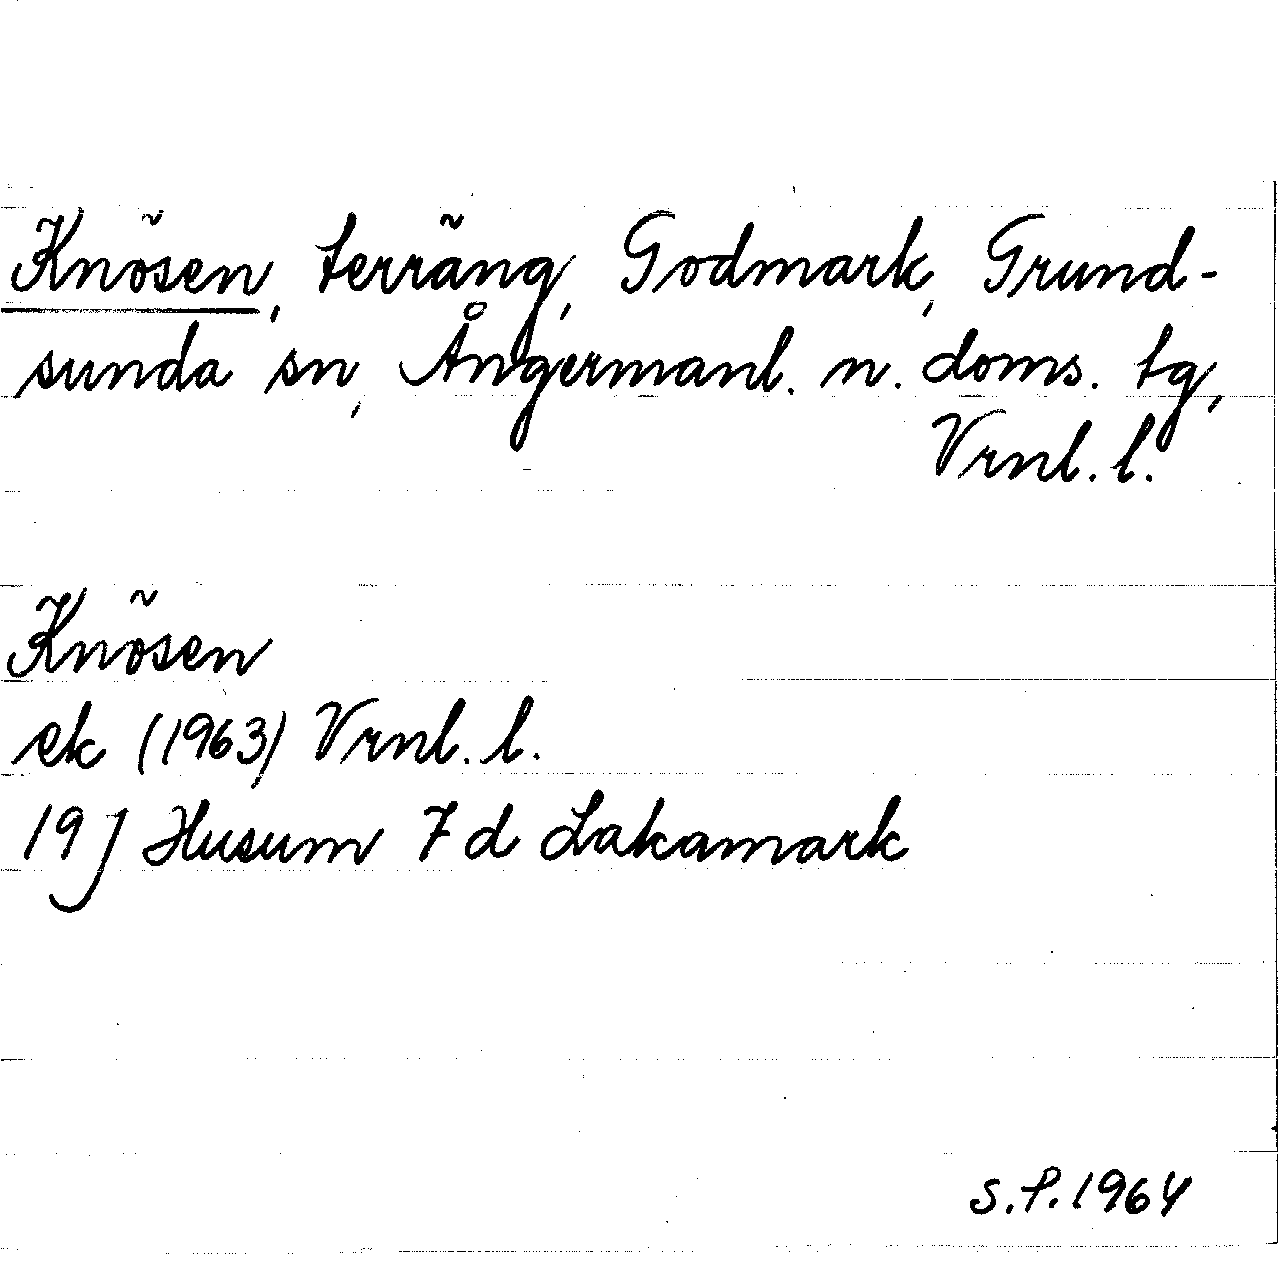 Knösen, terräng, Godmark, Grund-
sunda sn, Ångermanl. n. doms. tg,
Vrnl. l.
Knösen
ek (1963) Vrnl. l.
19 J Husum 7 d Lakamark
S.P. 1964